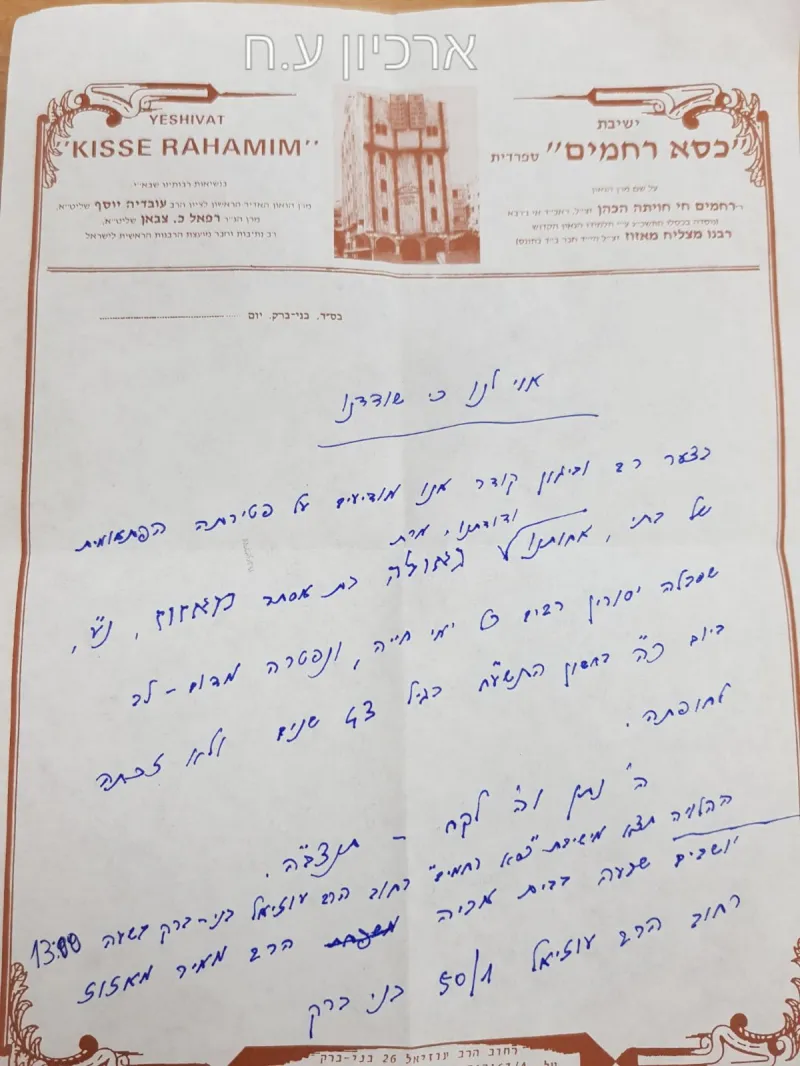 ארכיון ע.ח
YESHIVAT
"KISSE RAHAMIM"
בנשיאות רבותינו שבא"י
מרן הגאון האדיר הראשון לציון הרב עובדיה יוסף שליט"א,
מרן הגר רפאל כ. צבאן שליט"א.
רב נתיבות וחבר מועצת הרבנות הראשית לישראל
ישיבת
"כסא רחמים" ספרדית
על שם מרן הגאון
רחמים חי חויתה הכהן זצ"ל,
רבנו מצליח מאזוז זצ"ל
בס"ד, בני-ברק, יום
אוי לנו כי שודדנו
בצער רב וביגון קודר אנו מודיעים על פטירתה הפתאומית
של בתי, אחותנו ודודתנו, מרת גאולה בת אסתר מאזוז, נ"ע,
שסבלה יסורין רבים כל ימי חייה, ונפטרה מדום-לב
ביום כ"ה חשון התשע"ח בגיל 43 שנים ולא זכתה
לחופתה.
ה' נתן וה' לקח - תנצב"ה.
ההלויה תצא מישיבת "כסא רחמים" רחוב הרב עוזיאל בני-ברק בשעה 13:00
יושבים שבעה בבית אביה הרב מאיר מאזוז
רחוב הרב עוזיאל 50/1 בני ברק
רחוב הרב עוזיאל 26 בני-ברק